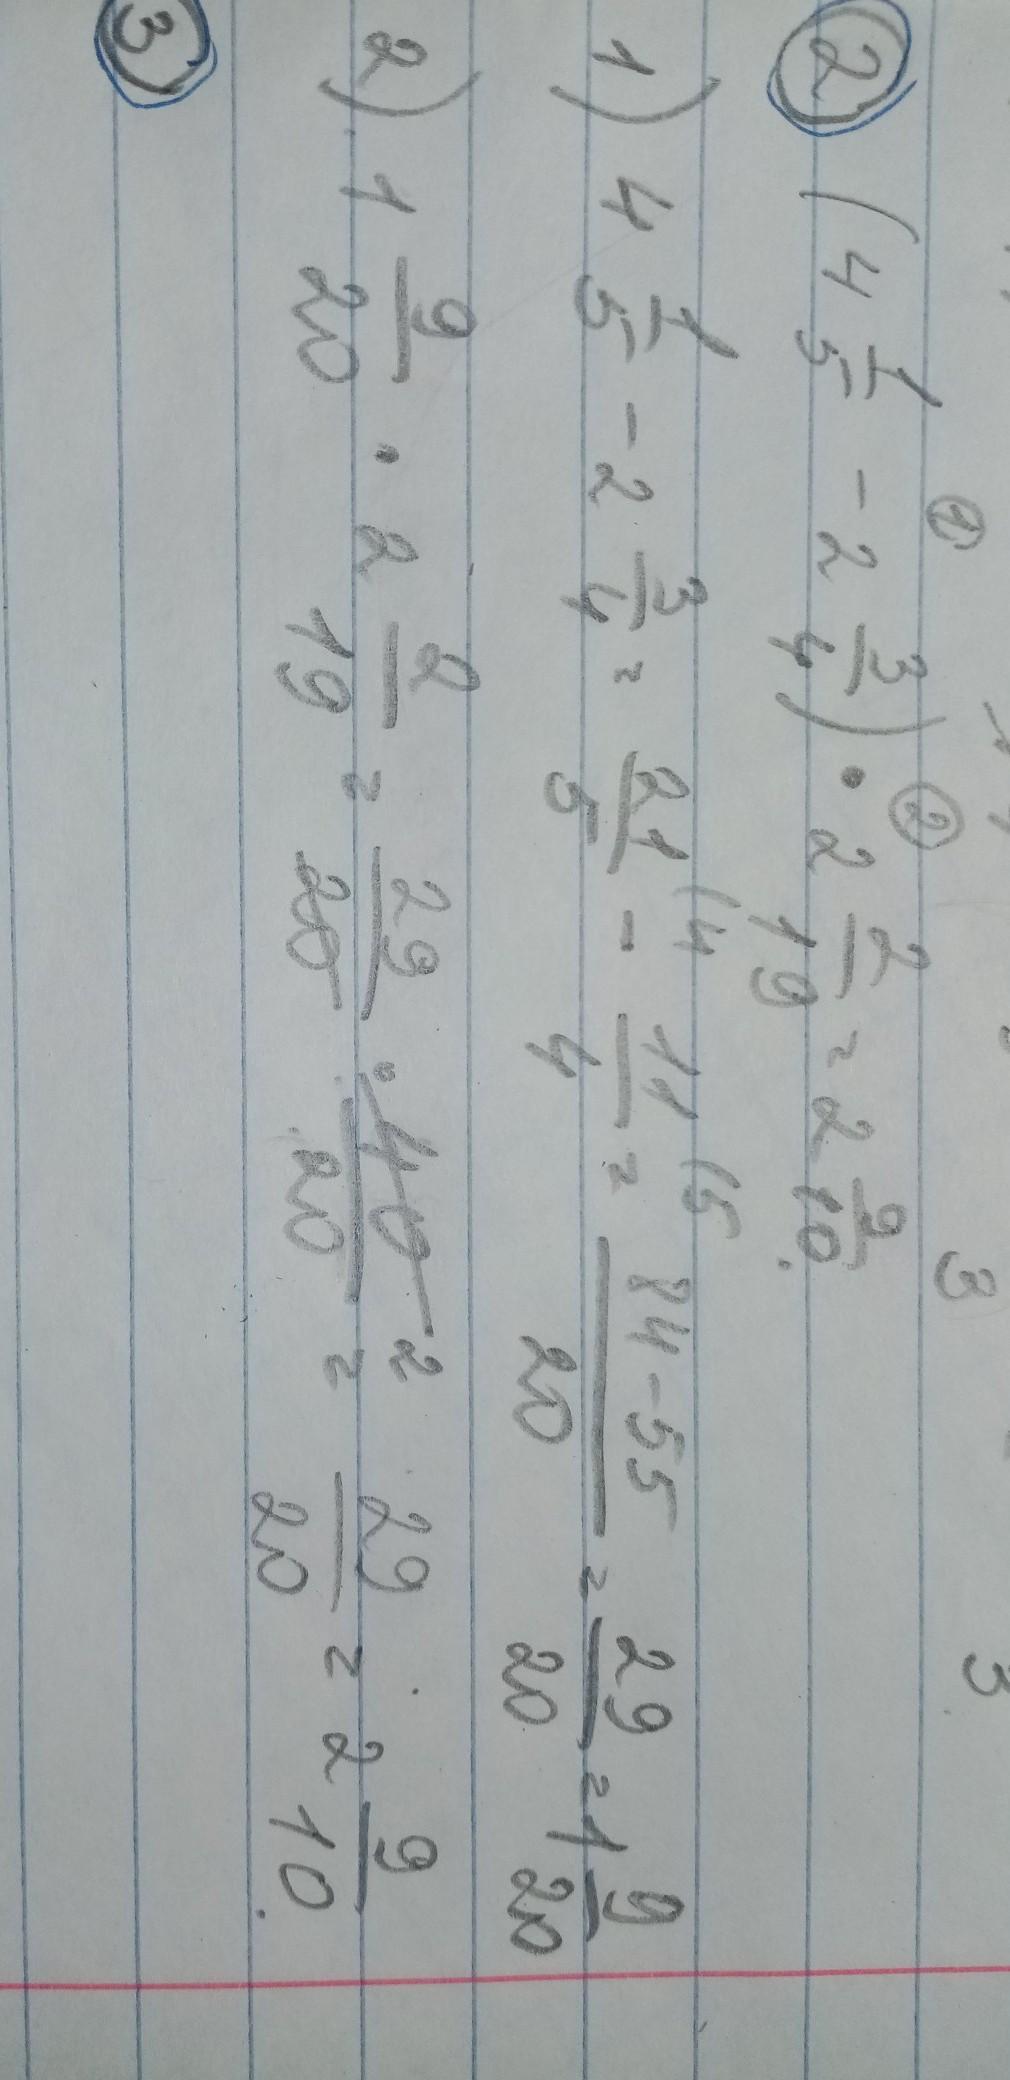 ① ②
② (4 1/5 - 2 3/4) · 2 2/19 = 2 9/10.
1) 4 1/5 - 2 3/4 = 21/5 (4 - 11/4 (5 = 84-55/20 = 29/20 = 1 9/20
2) 1 9/20 · 2 2/19 = 29/20 · 40/20 = 29/20 = 2 9/10.
③